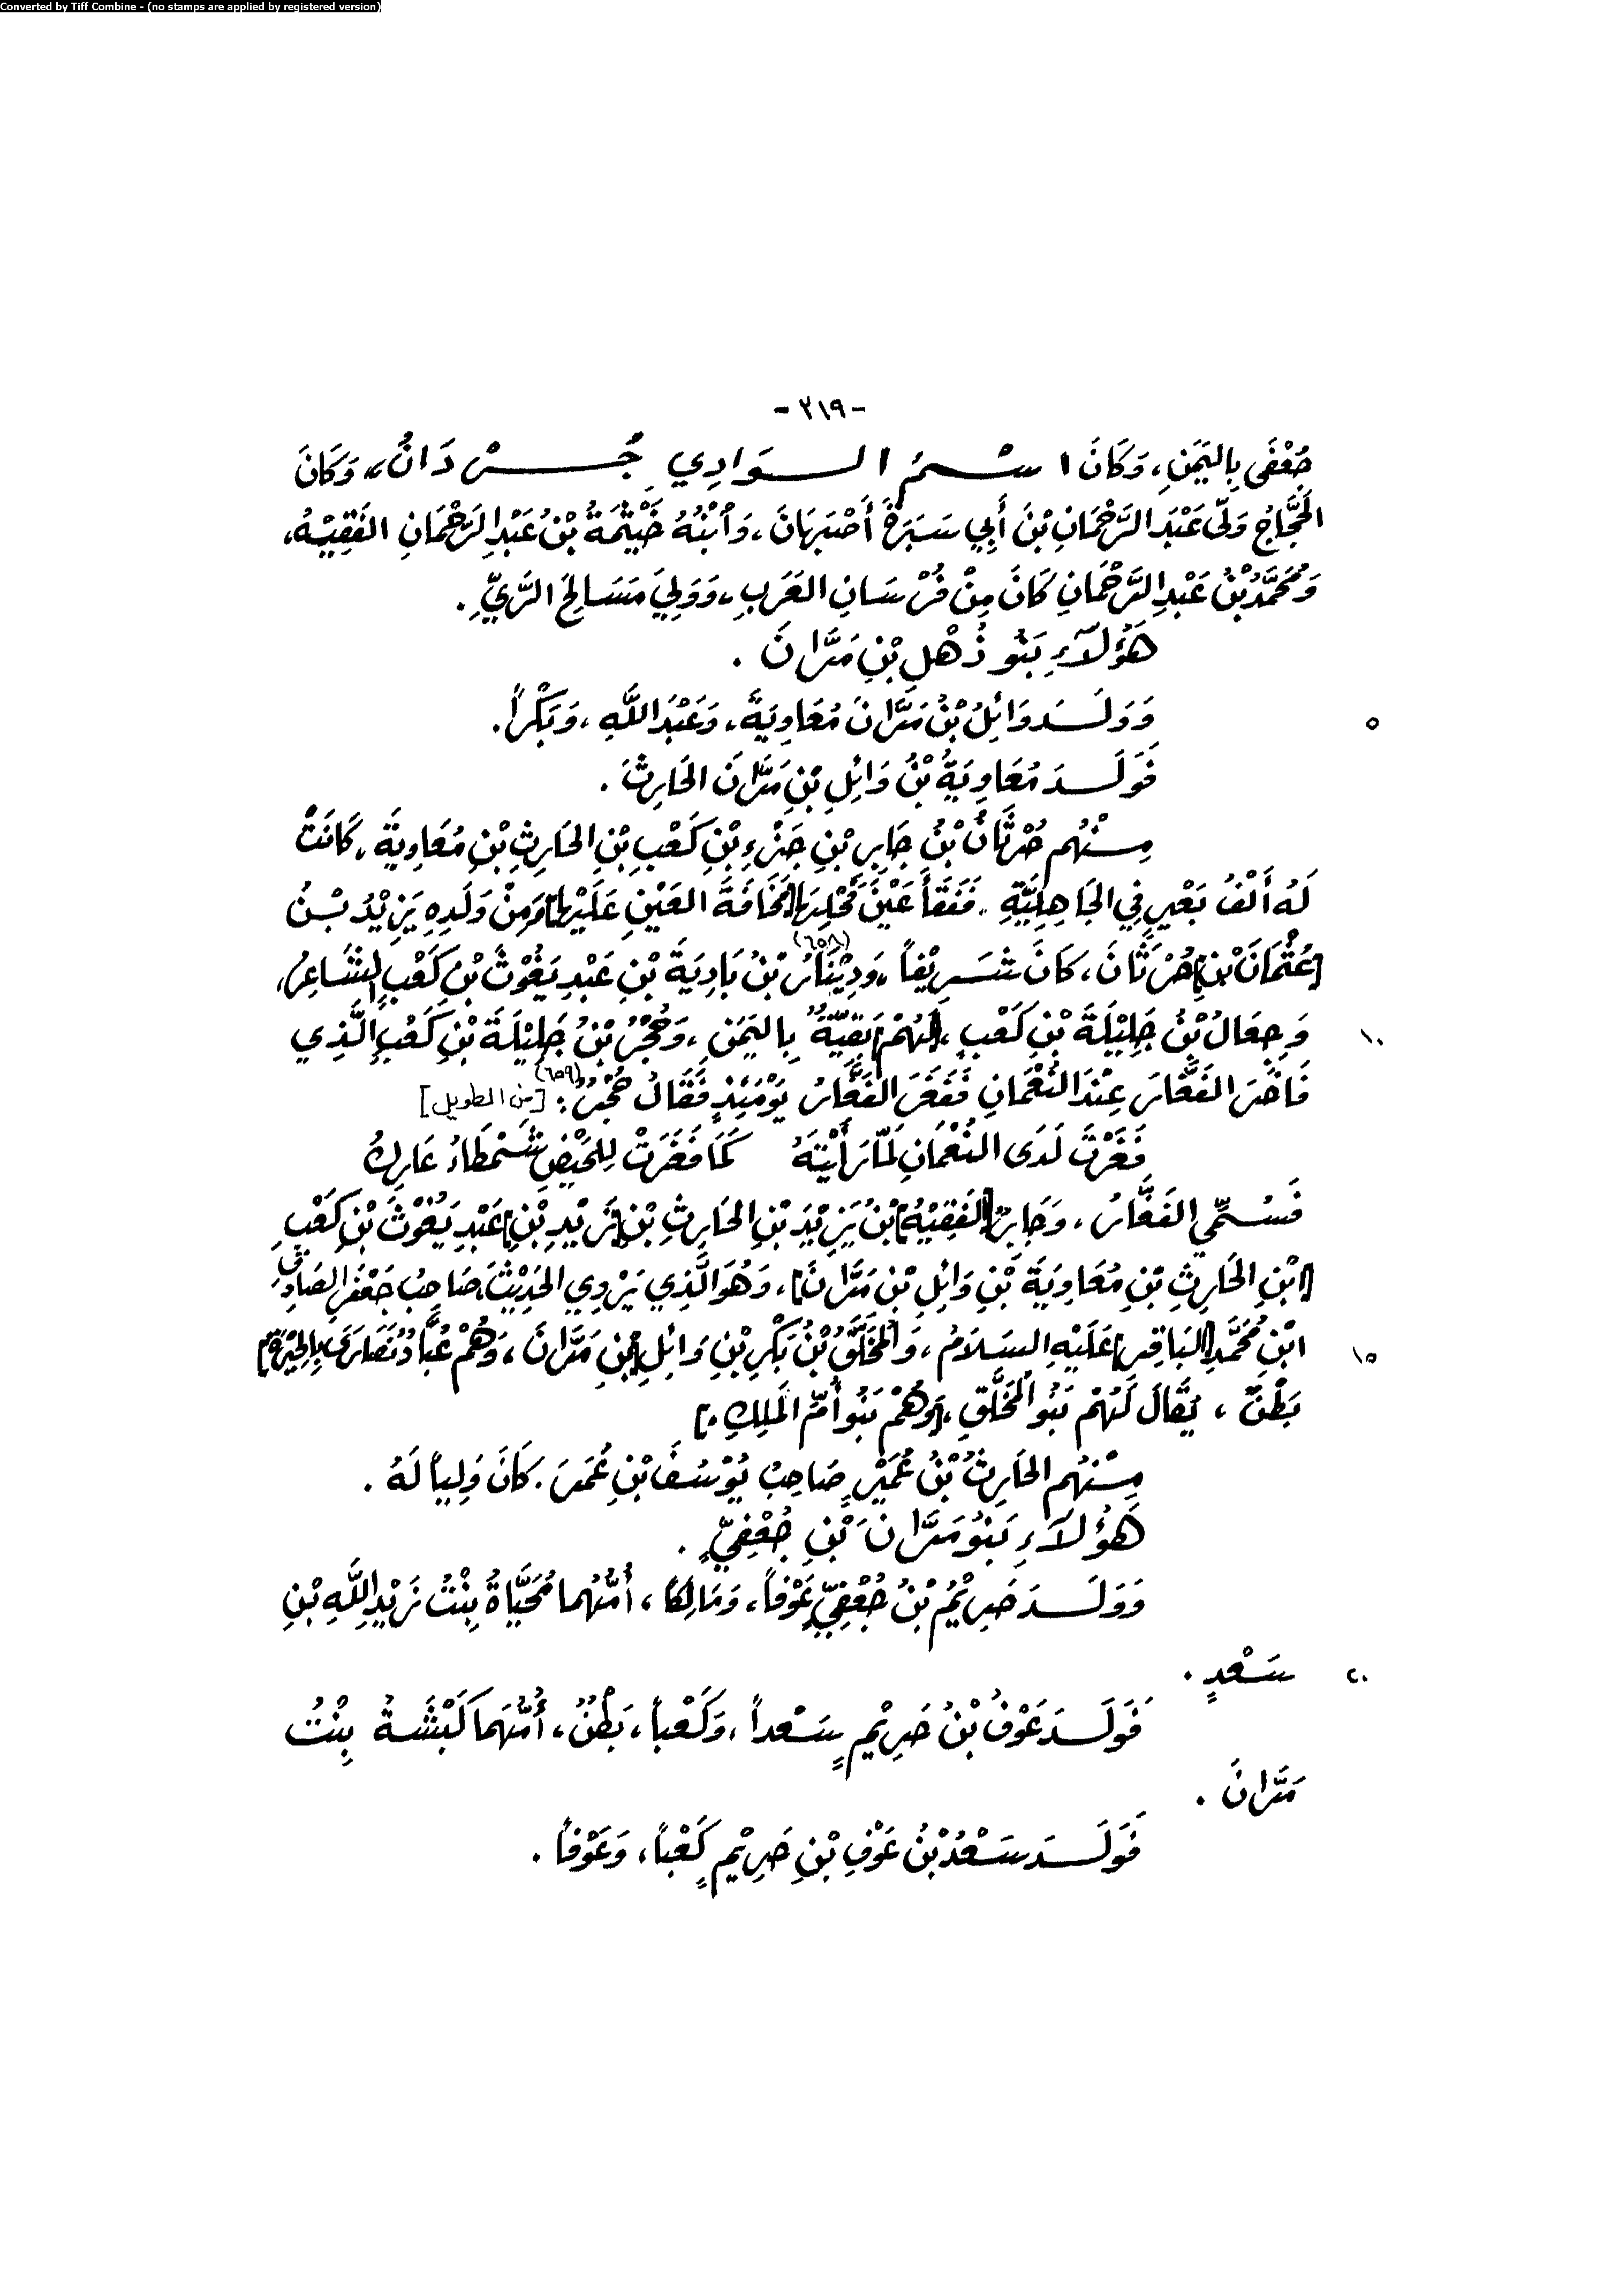 Converted by Tiff Combine - (no stamps are applied by registered version)
- ٣١٩ -
جُعْفَى بِاليَمَنِ، وَكَانَ اسْمُ الوَادِي جُرْدَانُ، وَكَانَ
الحَجَّاجُ وَلَّى عَبْدَ الرَّحْمَانِ بْنَ أَبِي سَبَرَةَ أَصْبَهَانَ، وَابْنُهُ خَيْثَمَةُ بْنُ عَبْدِ الرَّحْمَانِ الفَقِيْهُ،
وَمُحَمَّدُ بْنُ عَبْدِ الرَّحْمَانِ كَانَ مِنْ فُرْسَانِ العَرَبِ، وَوَلِيَ مَسَالِحَ الرَّيِّ.
هَؤُلَاءِ بَنُو ذُهْلِ بْنِ مَرَّانَ .
٥ وَوَلَدَ وَائِلُ بْنُ مَرَّانَ مُعَاوِيَةَ، وَعَبْدَ اللَّهِ، وَبَكْراً.
فَوَلَدَ مُعَاوِيَةُ بْنُ وَائِلِ بْنِ مَرَّانَ الحَارِثَ .
مِنْهُم حُرْثَانُ بْنُ جَابِرِ بْنِ جَزْءِ بْنِ كَعْبِ بْنِ الحَارِثِ بْنِ مُعَاوِيَةَ، كَانَتْ
لَهُ أَلْفُ بَعْيرٍ فِي الجَاهِلِيَّةِ، فَفَقَأَ عَيْنَ فَحْلِهَا [مَخَافَةَ العَيْنِ عَلَيْهَا] وَمِنْ وَلَدِهِ يَزِيْدُ بْنُ
[عُثْمَانَ بْنِ] حُرْثَانَ، كَانَ شَرِيْفاً، وَدِيْنَارُ (٦٥٨) بْنُ بَادِيَةَ بْنِ عَبْدِ يَغُوْثَ بْنِ كَعْبٍ الشَاعِرُ،
١٠ وَجِعَالُ بْنُ جَلِيْلَةَ بْنِ كَعْبٍ، [لَهُمْ] بَقِيَّةٌ بِاليَمَنِ، وَحُجْرُ بْنُ جَلِيْلَةَ بْنِ كَعْبٍ الَّذِي
فَاخَرَ الفَغَّارَ عِنْدَ النُّعْمَانِ فَفَغَرَ الفَغَّارُ يَوْمَئِذٍ فَقَالَ حُجْرٌ (٦٥٩): [مِن الطويل]
فَغَرْتَ لَدَى النُعْمَانِ لَمَّا رَأَيْتَهُ كَمَا فَغَرَتْ لِلحَيْضِ شَمْطَاءُ عَارِكُ
فَسُمِّي الفَغَّارُ، وَجَابِرُ [الفَقِيْهُ] بْنُ يَزِيْدَ بْنِ الحَارِثِ بْنِ [زَيْدِ بْنِ] عَبْدِ يَغُوْثَ بْنِ كَعْبِ
[ابْنِ الحَارِثِ بْنِ مُعَاوِيَةَ بْنِ وَائِلِ بْنِ مَرَّانَ]، وَهُوَ الَّذِي يَرْوِي الحَدِيْثَ، صَاحِبُ جَعْفَرٍ الصَادِقِ
١٥ ابْنِ مُحَمَّدٍ [البَاقِرِ] عَلَيْهِ السَلَامُ، وَالمُخَلَّقُ بْنُ بَكْرِ بْنِ وَائِلِ [بْنِ مَرَّانَ، وَهُمْ عُبَّادٌ نَصَارَى بِالحِيْرَةِ]
بَطْنٌ ، يُقَالَ لَهُمْ بَنُو المُخَلَّقِ، [وَهُمْ بَنُو أُمِّ المَلِكِ.]
مِنْهُم الحَارِثُ بْنُ عُمَيْرٍ صَاحِبُ يُوْسُفَ بْنِ عُمَرَ. كَانَ وَلِياً لَهُ .
هَؤُلَاءِ بَنُو مَرَّانَ بْنِ جُعْفِيٍّ .
وَوَلَدَ صَرِيْمُ بْنُ جُعْفِيٍّ عَوْفاً، وَمَالِكاً، أُمُّهُما مُحَيَّاةُ بِنْتُ زَيْدِ اللَّهِ بْنِ
٢٠ سَعْدٍ .
فَوَلَدَ عَوْفُ بْنُ صَرِيْمٍ سَعْداً، وَكَعْباً، بَطْنٌ، أُمُّهُمَا كَبْشَةُ بِنْتُ
مَرَّانَ .
فَوَلَدَ سَعْدُ بْنُ عَوْفِ بْنِ صَرِيْمٍ كَعْباً، وَعَوْفاً .